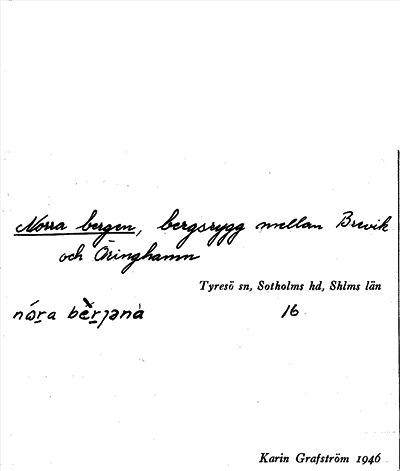 Norra bergen, bergsrygg mellan Brevik
och Öringhamn
Tyresö sn, Sotholms hd, Shlms län
16
Karin Grafström 1946